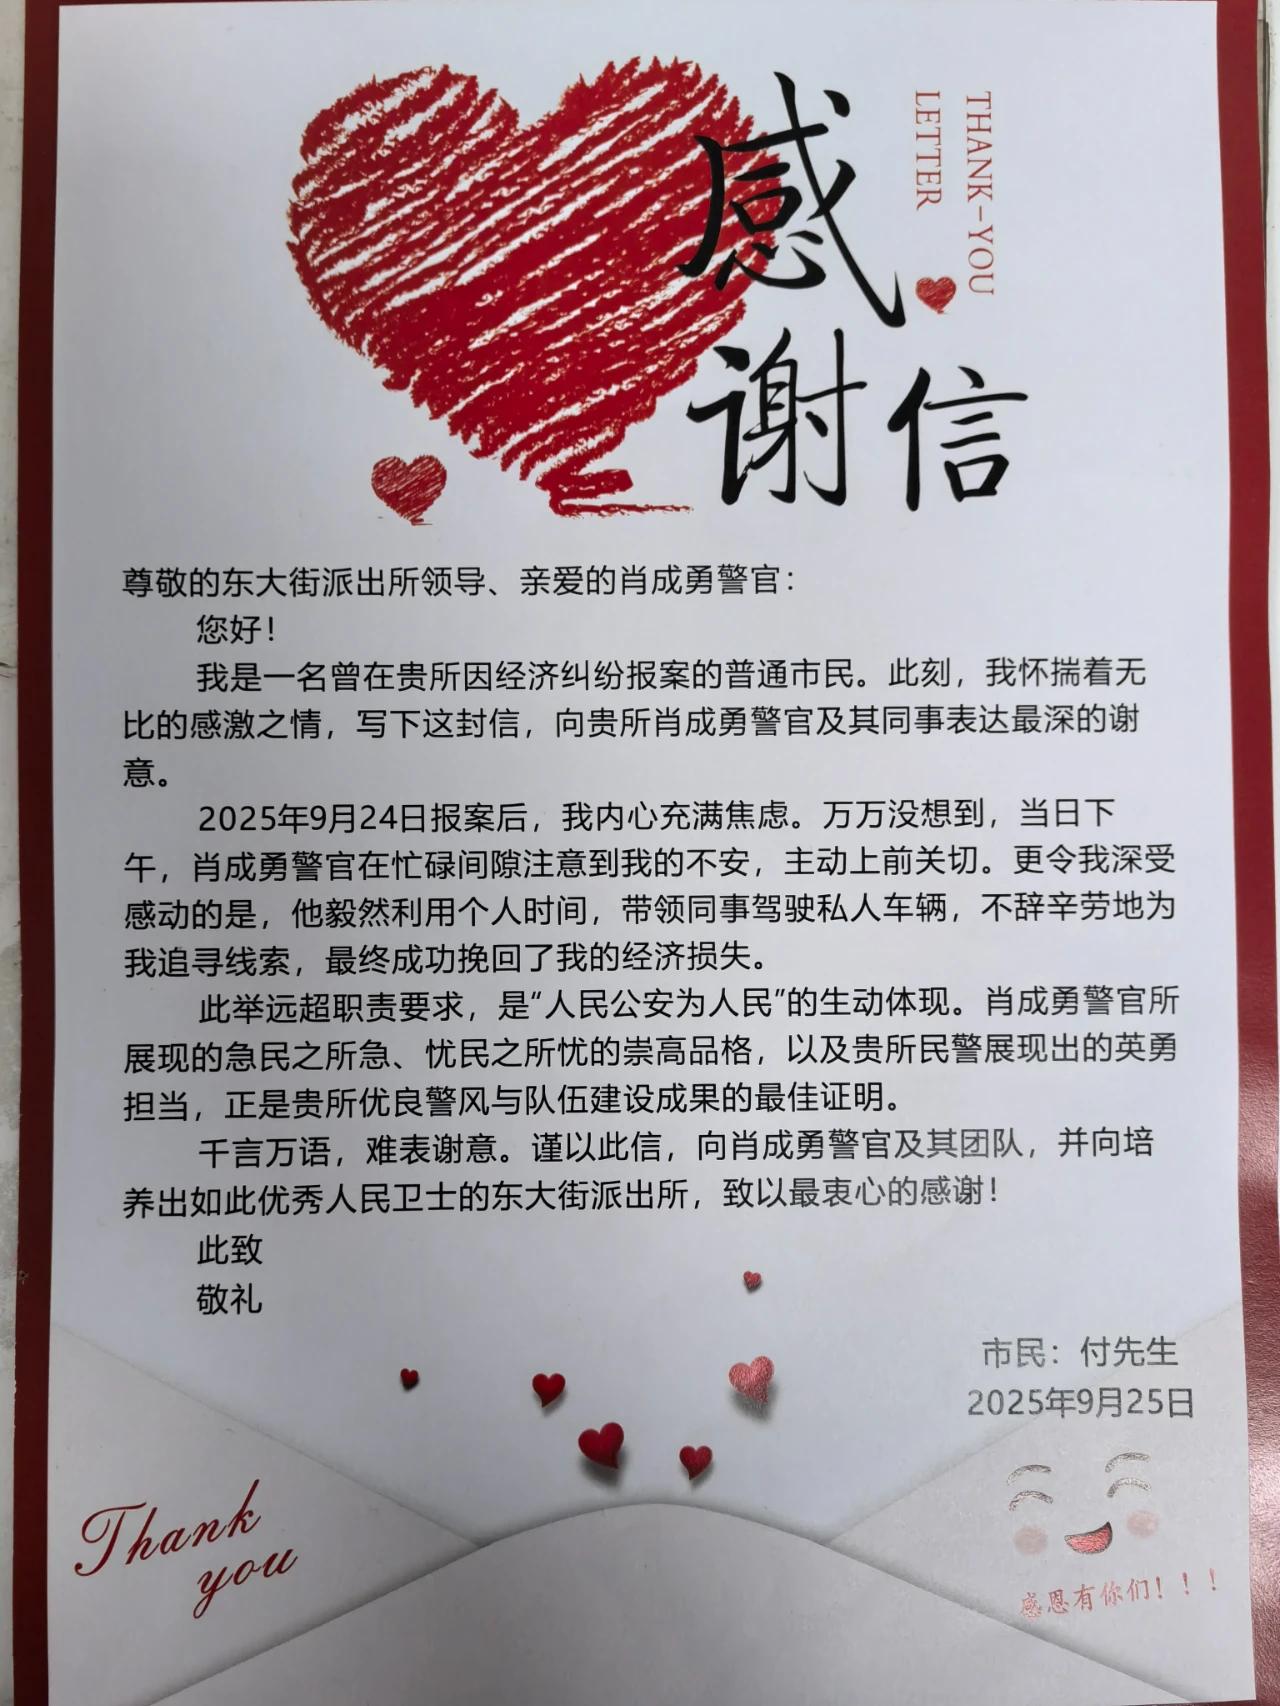 感
谢信
THANK-YOU
LETTER
尊敬的东大街派出所领导、亲爱的肖成勇警官：
您好！
我是一名曾在贵所因经济纠纷报案的普通市民。此刻，我怀揣着无
比的感激之情，写下这封信，向贵所肖成勇警官及其同事表达最深的谢
意。
2025年9月24日报案后，我内心充满焦虑。万万没想到，当日下
午，肖成勇警官在忙碌间隙注意到我的不安，主动上前关切。更令我深受
感动的是，他毅然利用个人时间，带领同事驾驶私人车辆，不辞辛劳地为
我追寻线索，最终成功挽回了我的经济损失。
此举远超职责要求，是“人民公安为人民”的生动体现。肖成勇警官所
展现的急民之所急、忧民之所忧的崇高品格，以及贵所民警展现出的英勇
担当，正是贵所优良警风与队伍建设成果的最佳证明。
千言万语，难表谢意。谨以此信，向肖成勇警官及其团队，并向培
养出如此优秀人民卫士的东大街派出所，致以最衷心的感谢！
此致
敬礼
市民：付先生
2025年9月25日
Thank
you
感恩有你们！！！